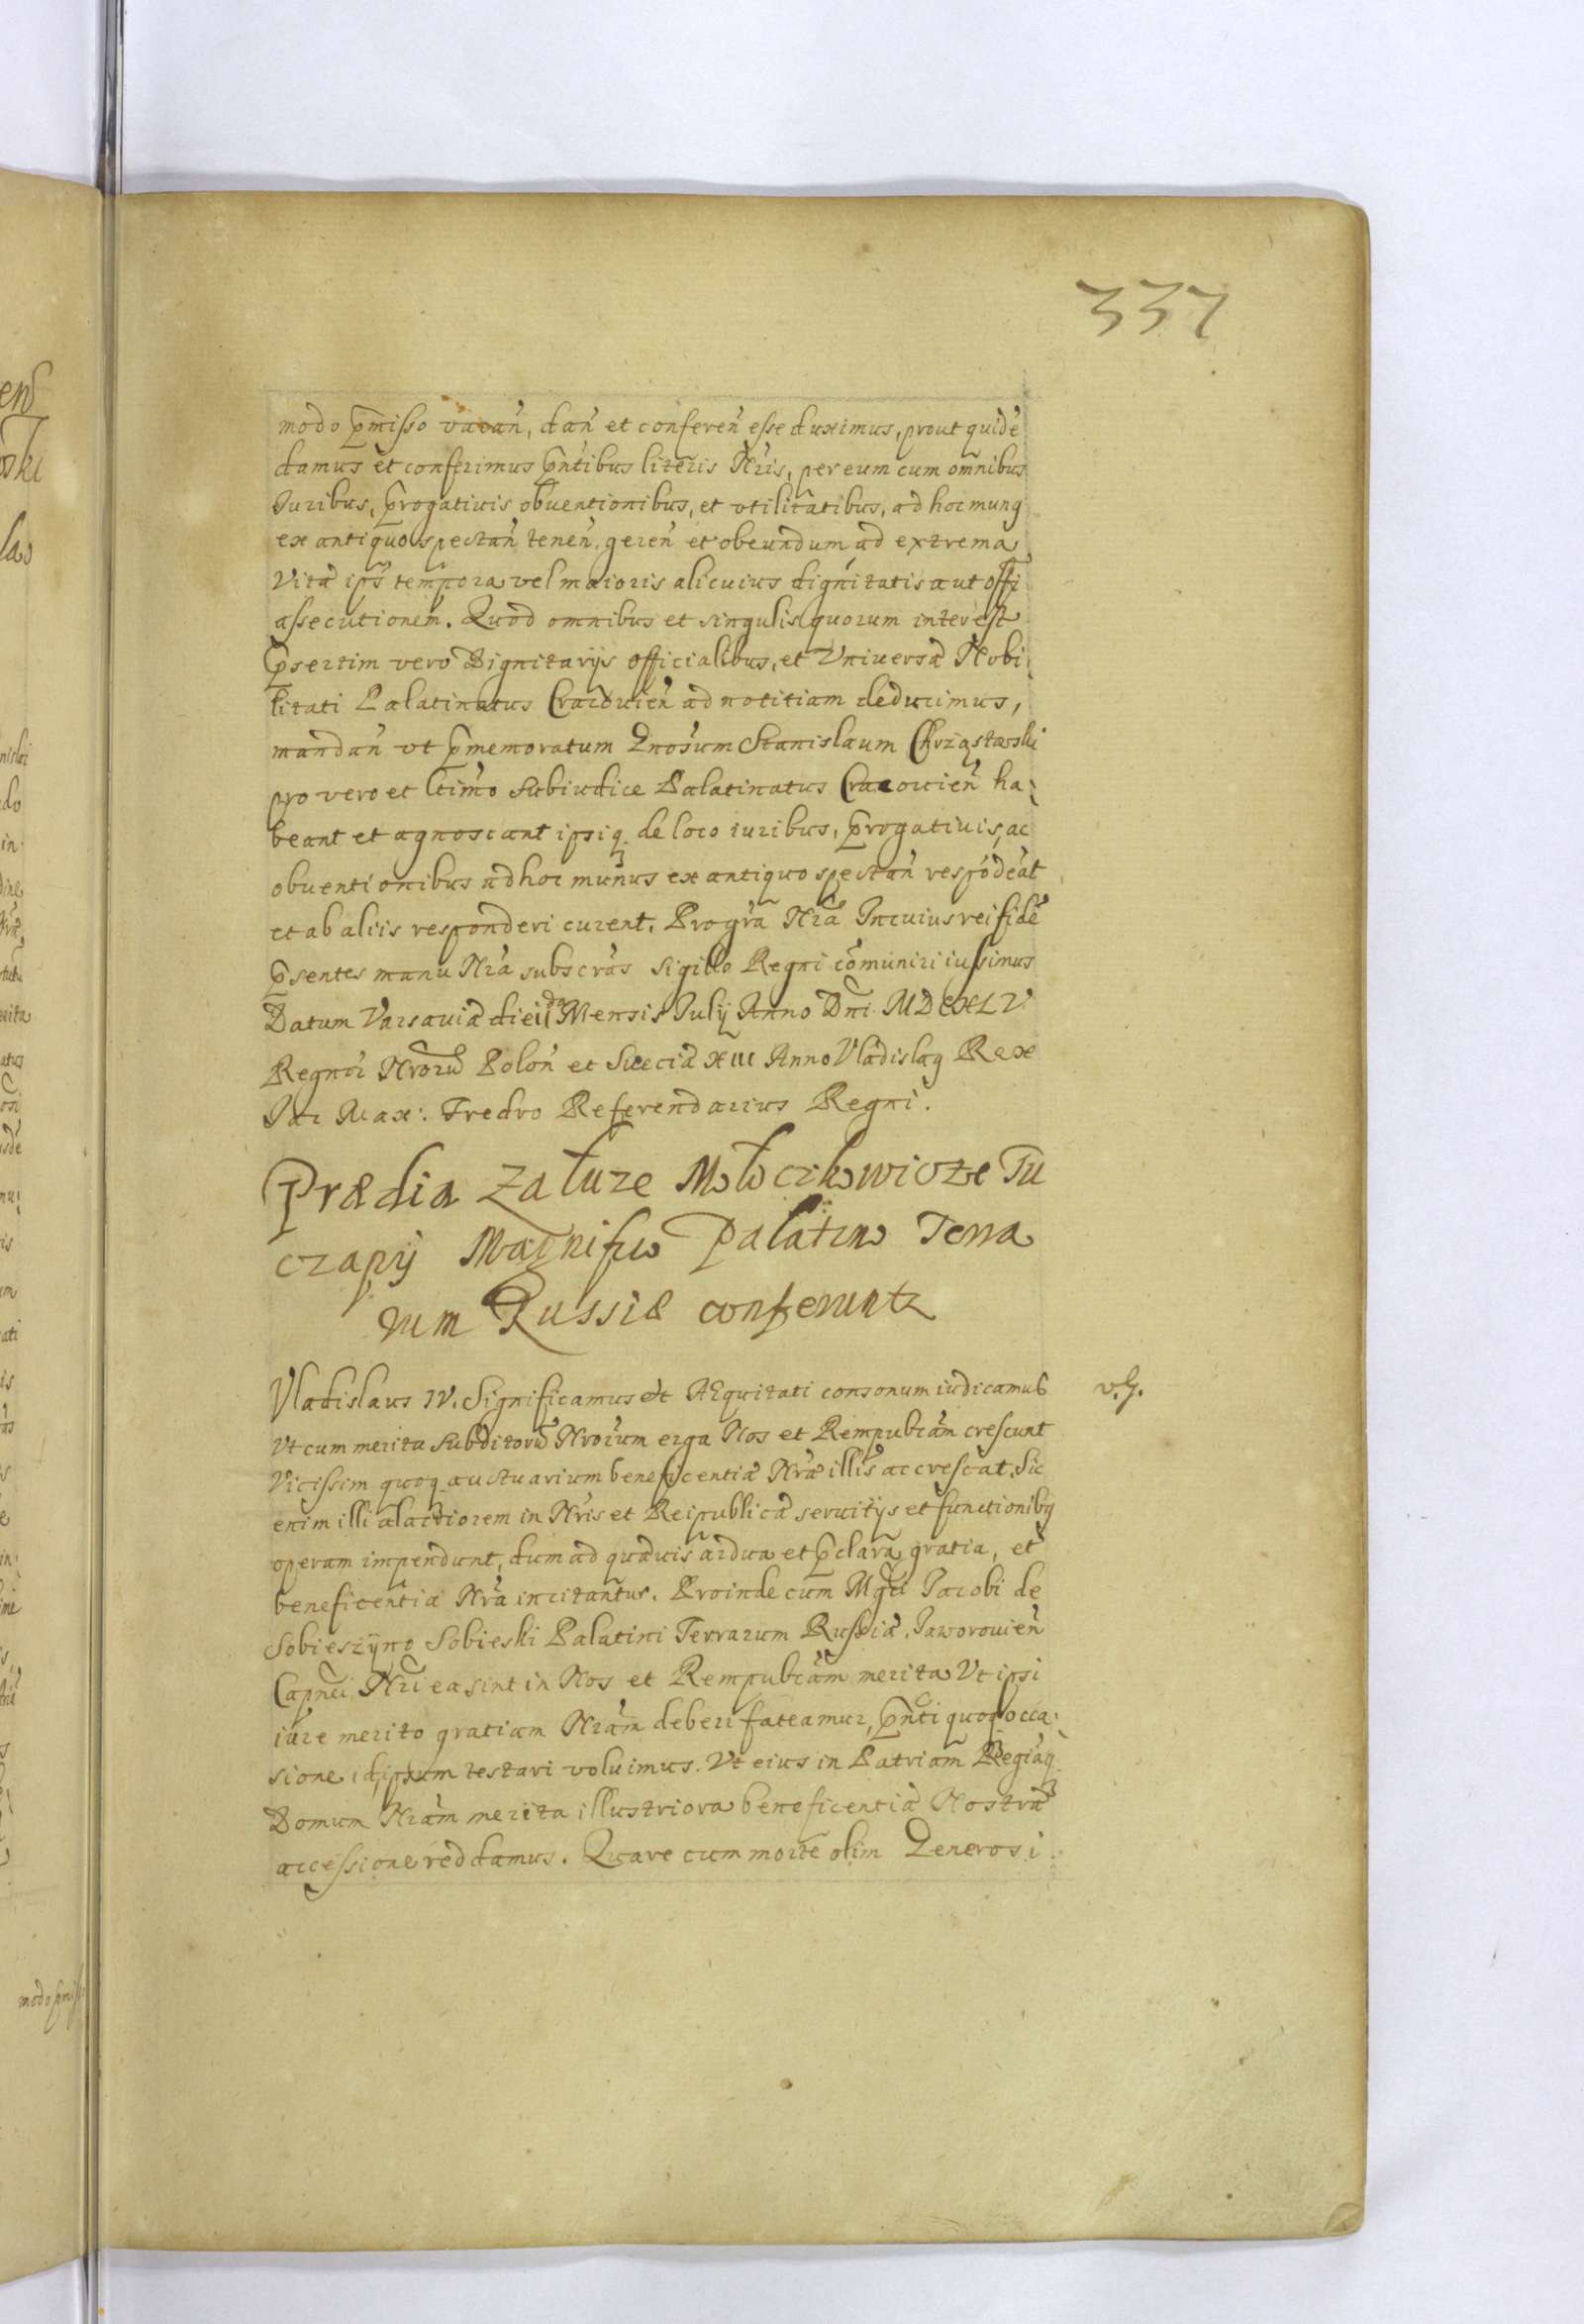 337
modo p̄misso vacan̄, dan̄ et conferen̄ esse duximus, prout quidē
damus et conferimus p̄ntibus literis Nr̄is, per eum cum omnibus
Iuribus, p̄rogativis obventionibus, et vtilitatibus, ad hoc munq
ex antiquo spectan̄ tenen̄. geren̄ et obeundum ad extrema
Vitæ ips̄ tempora vel maioris alicuius dignitatis aut offi
assecutionem. Quod omnibus et singulis quorum interest
p̄sertim vero Dignitarijs officialibus, et Vniversæ Nobi:
litati Palatinatus Cracovien̄ ad notitiam deducimus,
mandan̄ vt p̄memoratum Gnosum Stanislaum Chrząstowski
pro vero et ltimo Subiudice Palatinatus Cracovien̄ ha:
beant et agnoscant ipsiq. de loco iuribus, p̄rogativis, ac
obventionibus ad hoc munus ex antiquo spectan̄ respōdeāt
et ab aliis responderi curent. Pro gr̄a Nr̄a In cuius rei fidē
p̄sentes manu Nr̄a subscr̄as Sigillo Regni cōmuniri iussimus
Datum Varsaviæ die ii da Mensis Iulij Anno Dn̄i MDCXLV
Regnor Nrorū Polon̄ et Sueciæ XIII Anno Vladislaq Rex
Iac Max: Fredro Referendarius Regni.
Prædia Załuze Mołoczkowicze Tu
czapij Magnifico Palatino Terra
rum Russiæ conferuntz
Vladislaus IV. Significamus etc Æquitati consonum iudicamus
v.g.
Vt cum merita Subditorū Nrorum erga Nos et Rempubcam crescunt
Vicissim quoq auctuarium beneficentiæ Nræ illis accrescat. Sic
enim illi alacriorem in Nris et Reipublicæ servitijs et functionibq
operam impendunt, dum ad quævis ardua et p̄clara gratia, et
beneficentia Nra incitantur. Proinde cum Mgci Iacobi de
Sobieszyno Sobieski Palatini Terrarum Russiæ, Iaworovien̄
Capnei Nri ea sint in Nos et Rempubcam merita Vt ipsi
iure merito gratiam Nram deberi fateamur, p̄nti quoq occa:
sione idipsum testari voluimus. Vt eius in Patriam Regiaq
Domum Nram merita illustriora beneficentiæ Nostræ
accessione reddamus. Quare cum morte olim Generosi